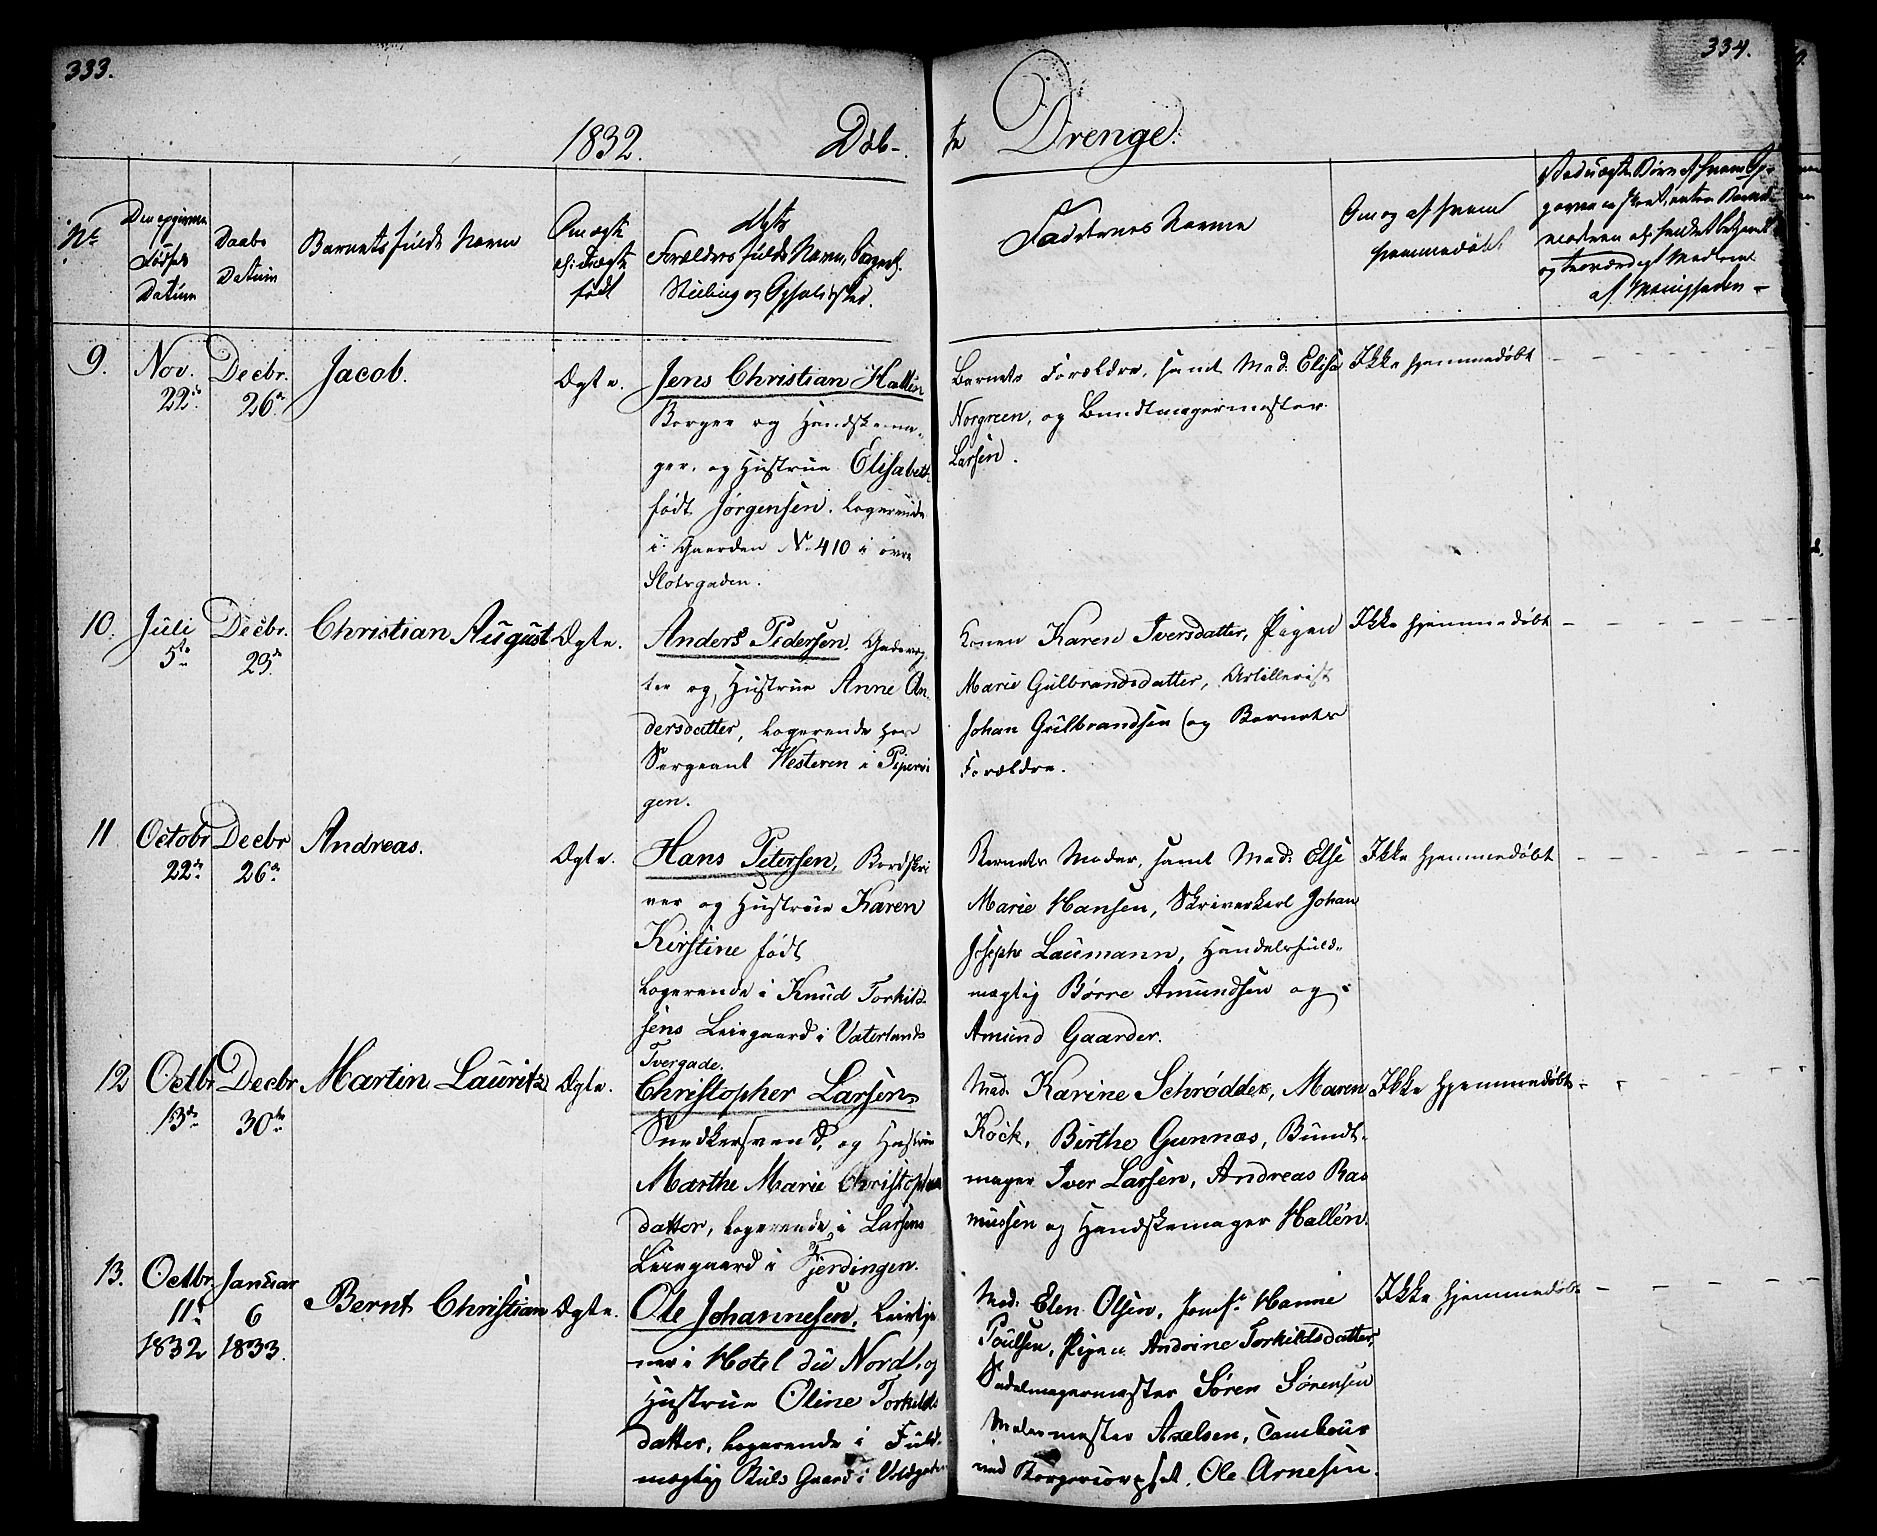 333.
334.
1832.
Døb-
te Drenge.
No
Den opgivne
Fødsels
Datum
Daabs
Datum
Barnets fulde Navn
Om ægte
el: uægte
født
Forældres fulde Navn,
Stilling og Opholdssted.
Faddernes Navne
Om og af hvem
hjemmedøbt
9.
Nov.
22de
Decbr.
26de
Jacob.
Ægte.
Jens Christian Hallén
Borger og Handskema-
ger, og Hustrue Elisabeth
født Jørgensen. Logerende
i Gaarden No 410 i øvre
Slotsgaden.
Barnets Forældre, samt Mad: Elise
Norgreen, og Bundtmagermester
Larsen.
Ikke hjemmedøbt
10.
Juli
5te
Decbr.
23de
Christian August
Ægte.
Anders Pedersen. Gadevæg-
ter og Hustrue Anne An-
dersdatter, Logerende hos
Sergeant Westeren i Pipervi
gen.
Konen Karen Iversdatter, Pigen
Marie Gulbrandsdatter, Artillerist
Johan Gulbrandsen (og Barnets
Forældre.
Ikke hjemmedøbt
11
Octobr
22de
Decbr
26de
Andreas.
Ægte.
Hans Petersen, Bordskri
ver og Hustrue Karen
Kirstine født
Logerende i Knud Torkild
sens Leiegaard i Vaterlands
Tvergade.
Barnets Moder, samt Mad: Else
Marie Hansen, Skriverkarl Johan
Joseph Laumann, Handelsfuld-
mægtig Børre Amundsen og
Amund Gaarder.
Ikke hjemmedøbt
12
Octbr
13de
Decbr
30te
Martin Lauritz
Ægte.
Christopher Larsen
Snedkersvend, og Hustrue
Marthe Marie Christophers
datter, Logerende i Larsens
Leiegaard i Fjerdingen.
Mad. Karine Schrødder, Maren
Kock, Birthe Gunnas, Bundt-
mager Iver Larsen, Andreas Ras
mussen og Handskemager Hallén.
Ikke hjemmedøbt
13.
Octbr.
11te
1832
Januar
6
1833.
Bernt Christian
Ægte.
Ole Johannesen, Leietje
ner i Hotel du Nord, og
Hustrue Oline Torkilds
datter, Logerende i Fuld-
mægtig Ruls Gaard i Voldgaden
Mad: Elen Olsen, Jomfr Hanne
Poulsen, Pigen Andrine Torkildsdatter,
Sadelmagermester Søren Sørensen
Malermester Axelsen, Tambour
ved Borgercorpset Ole Arnesen.
Ikke hjemmedøbt